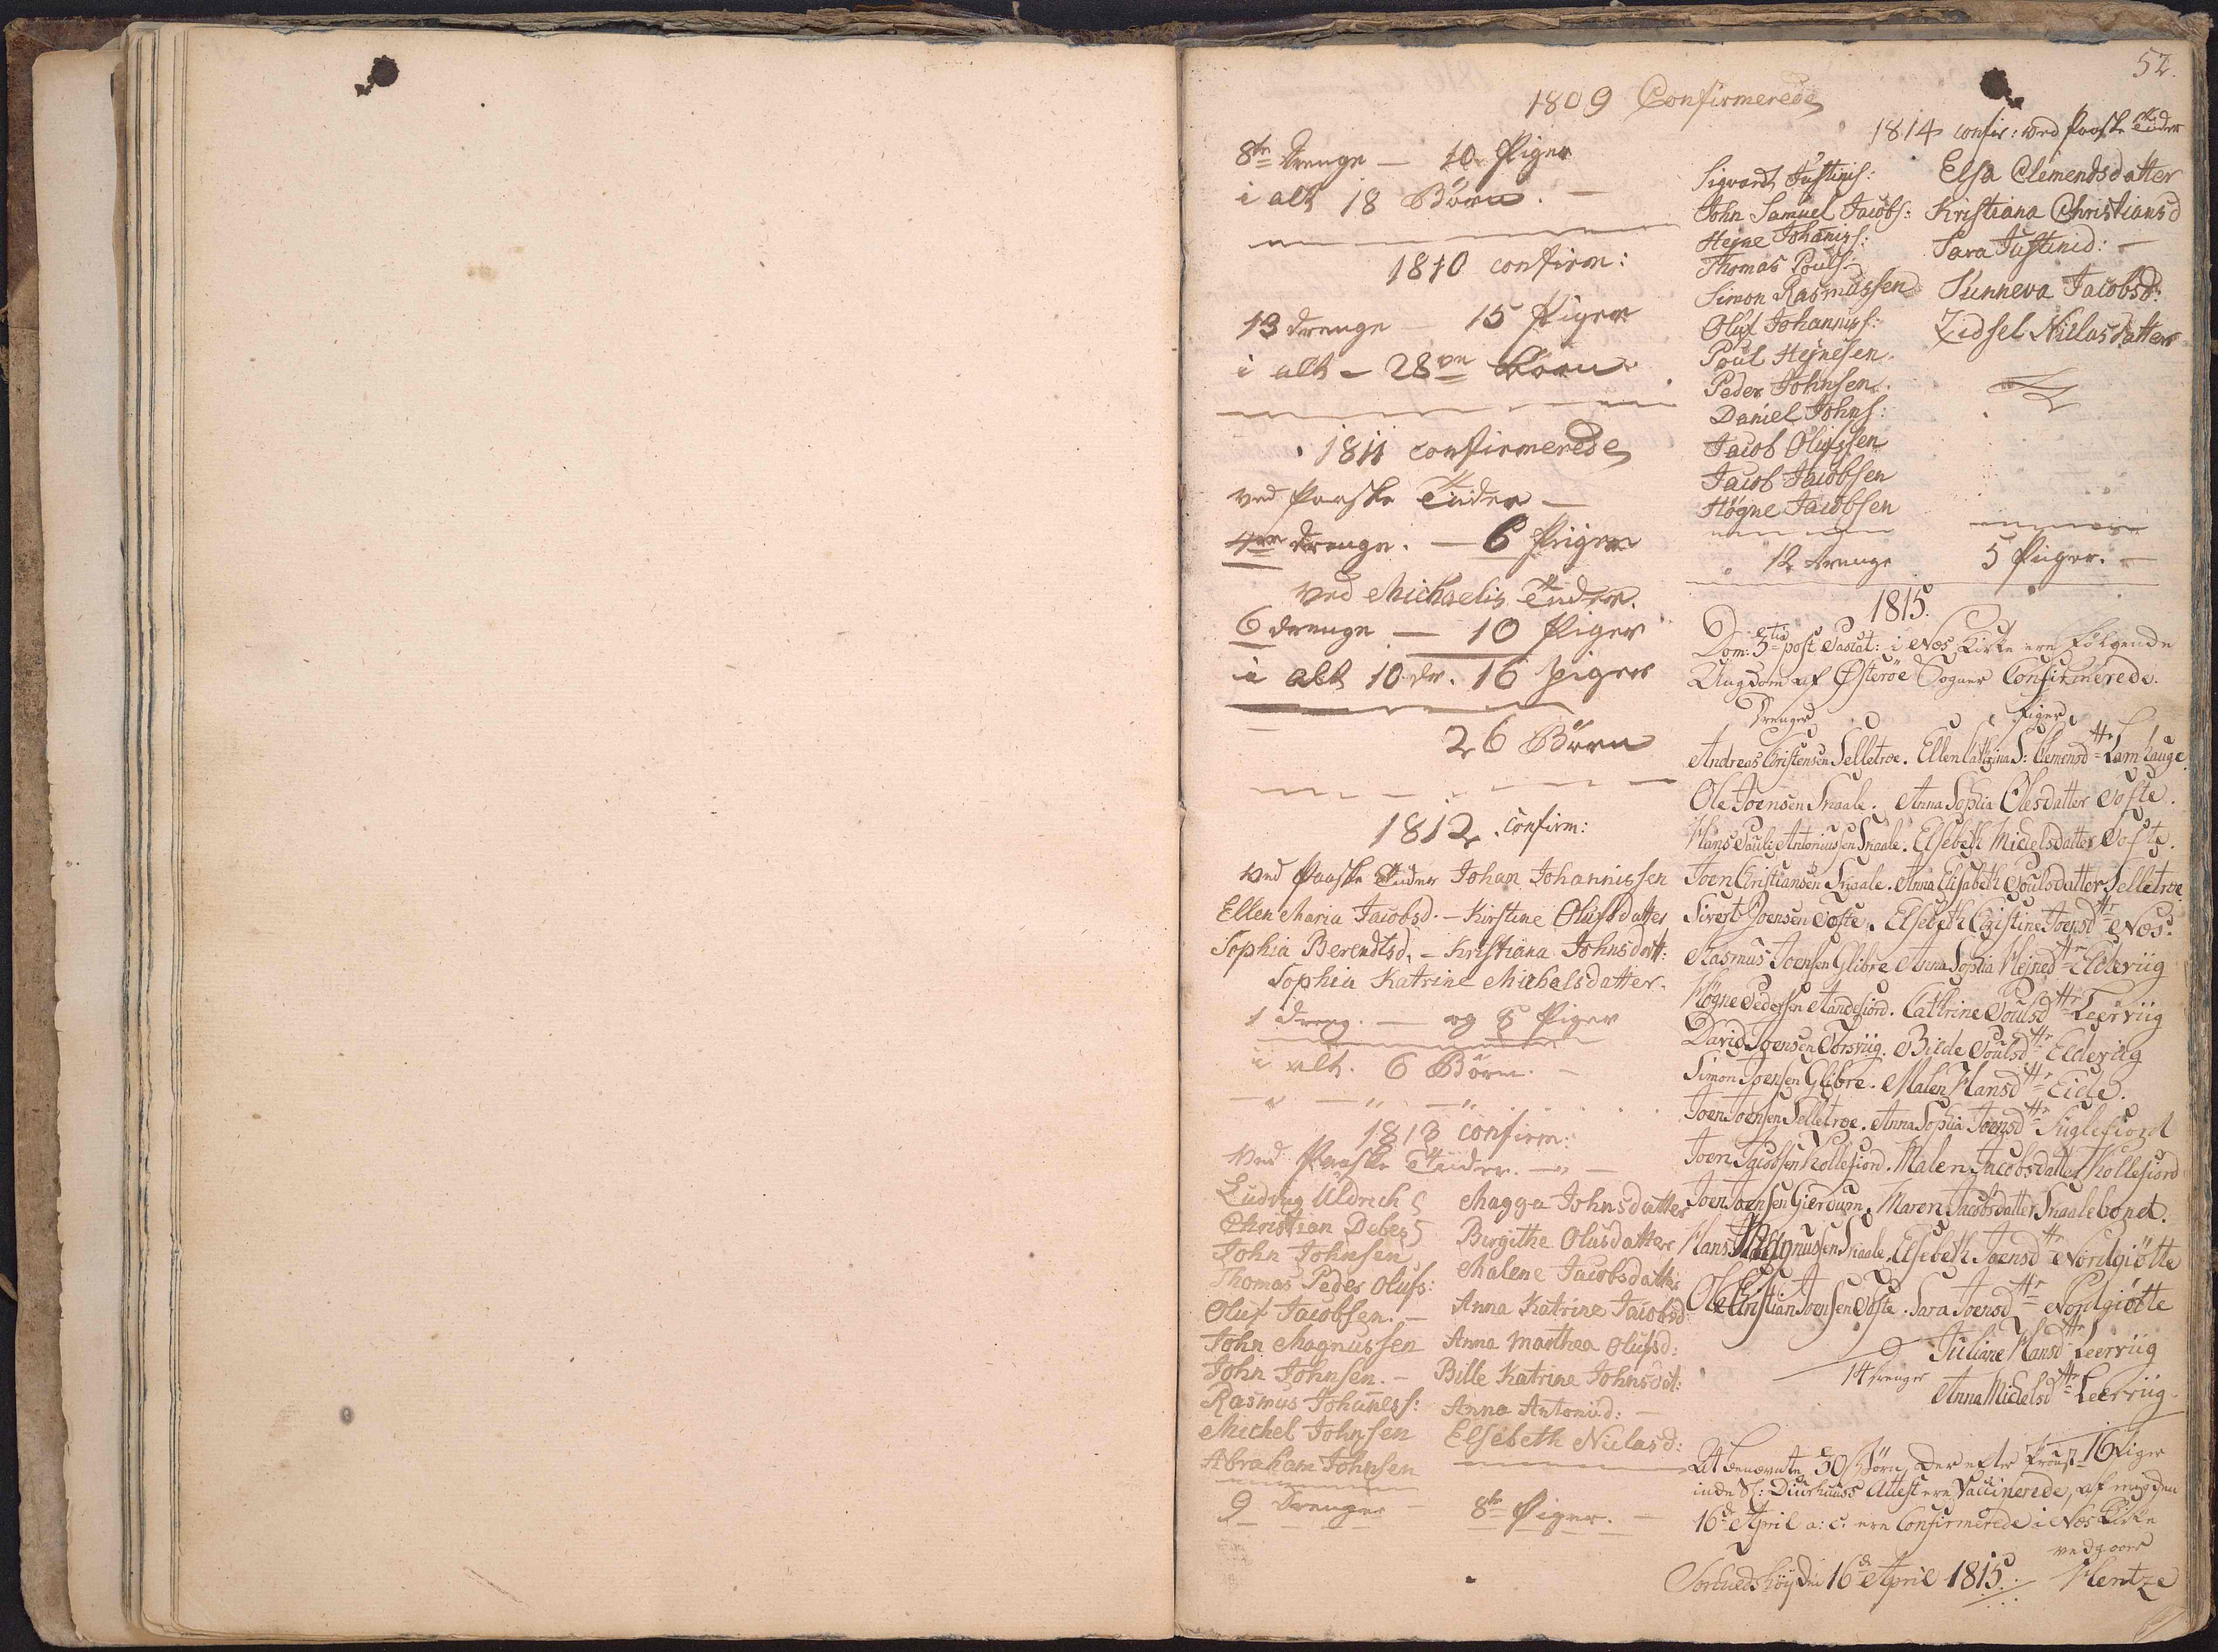 52.
1809 Confirmerede
8te Drenge — 10 Piger
i alt 18 Börn. —
1810 confirm:
13 Drenge — 15 Piger
i alt — 28ve Börn
1811 confirmerede
ved Paaske Tider —
4re Drenge. — 6 Piger
ved Michaelis Tider.
6 Drenge — 10 Piger
i alt 10 dr. 16 piger
26 Börn
1812. Confirm:
ved Paaske Tider Johan Johannissen
Ellen Maria Jacobsd. — Kirstine Olufsdatter
Sophia Berendtsd. — Kristiana Johnsdatt:
Sophia Katrine Michelsdatter.
1 Dreng. — og 5 Piger
i alt. 6 Börn. —
1813 confirm:
Ved Paaske Tider. —
Ludvig Uldrich
Christian Debes
John Johnsen
Thomas Peder Olufs:
Oluf Jacobsen. —
John Magnussen
John Johnsen. —
Rasmus Johaness:
Michel Johnsen
Abraham Johnsen
9 Drenge —
Magga Johnsdatter
Birgithe Olusdatter
Malene Jacobsdatter
Anna Katrine Jacobsd:
Anna Marthea Olufsd:
Bille Katrine Johnsdat:
Anna Antonid: —
Elsebeth Niclasd:
8te Piger. —
1814 confir: ved Paaske Tider
Sigvardt Justinis:
John Samuel Jacobs:
Hejne Johanis:
Thomas Pouls:
Simon Rasmussen
Oluf Johanniss:
Poul Hejnesen.
Peder Johnsen.
Daniel Johns:
Jacob Olufssen
Jacob Jacobsen
Högne Jacobsen
12 Drenge
Elsa Clemendsdatter
Kristiana Christiansd
Sara Justinid: —
Sunneva Jacobsd:
Zidsel Niclasdatter
5 Piger. —
1815.
Dom: 3tia post Pascat: i Næs Kirke ere følgende
Ungdom af Østeröe Sogner Confirmerede.
Drenge Piger
Andreas Christensen Selletræ. Ellen Cathrina S: Clemensdttr Lamhauge
Ole Joensen Snaale. Anna Sophia Olesdatter Tofte.
Hans Pauli Antoniussen Snaale. Elsebeth Michelsdatter Tofte.
Joen Christiansen Snaale. Anna Elisabeth Poulsdatter Selletræ
Sivert Joensen Tofte. Elsebeth Christine Joensdttr Næs.
Rasmus Joensen Glibre Anna Sophia Hejnesdttr Elderviig
Högne Pedersen Andefiord. Cathrine Poulsdttr Leerviig
David Joensen Torsviig. Bilde Poulsdttr Elderviig
Simon Joensen Glibre. Malen Hansdttr Eide.
Joen Joensen Selletræ. Anna Sophia Joensdttr Fuglefiord
Joen Jacobsen Kollefiord. Malen Jacobsdatter Kollefiord
Joen Joensen Gierdum. Maren Jacobsdatter Snaalebonet.
Hans Magnussen Snaale. Elsebeth Joensdttr Nordgiötte
Ole Christian Joensen Tofte. Sara Joensdttr Nordgiötte
Juliane Hansdttr Leerviig
14 Drenge
Anna Michelsdttr Leerviig.
16 Piger
At benævnte 30 Börn,
Attest ere Vaccinerede,
16de April a: c: ere Confirmerede i Næs Kirke
16de April 1815. Hentze